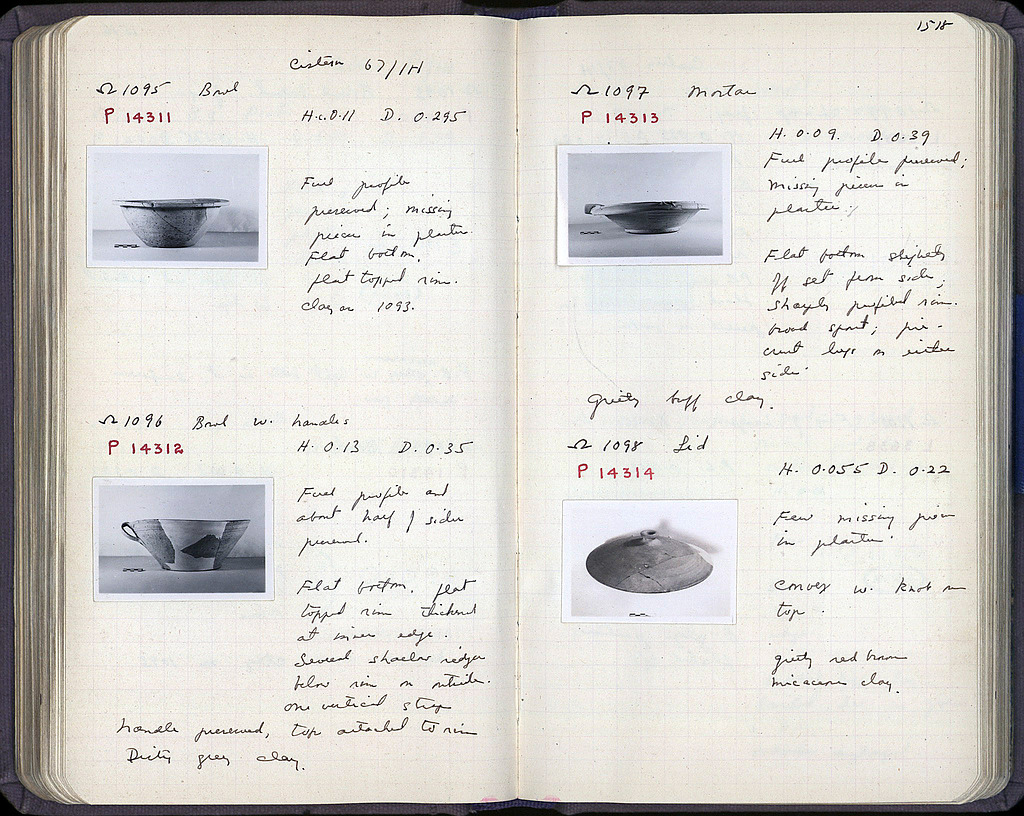 Cistern 67/1H
Ω 1095 Bowl
P 14311
H.c. 0.11 D. 0.295
Full profile
preserved; missing
pieces in plaster.
Flat bottom,
flat topped rim.
Clay as 1093.
Ω 1096 Bowl w. handles
P 14312
H. 0.13 D. 0.35
Full profile and
about half of sides
preserved.
Flat bottom, flat
topped rim thickened
at inner edge.
Several shallow ridges
below rim on outside.
One vertical strap
handle preserved, top attached to rim
Dirty grey clay.
1518
Ω 1097 Mortar
P 14313
H. 0.09. D. 0.39
Full profile preserved;
missing pieces in
plaster.
Flat bottom slightly
off set from side;
sharply profiled rim.
broad spout; pie-
crust lugs on either
side.
Gritty buff clay.
Ω 1098 Lid
P 14314
H. 0.055 D. 0.22
Few missing pieces
in plaster.
Convex w. knob on
top.
gritty red brown
micaceous clay.